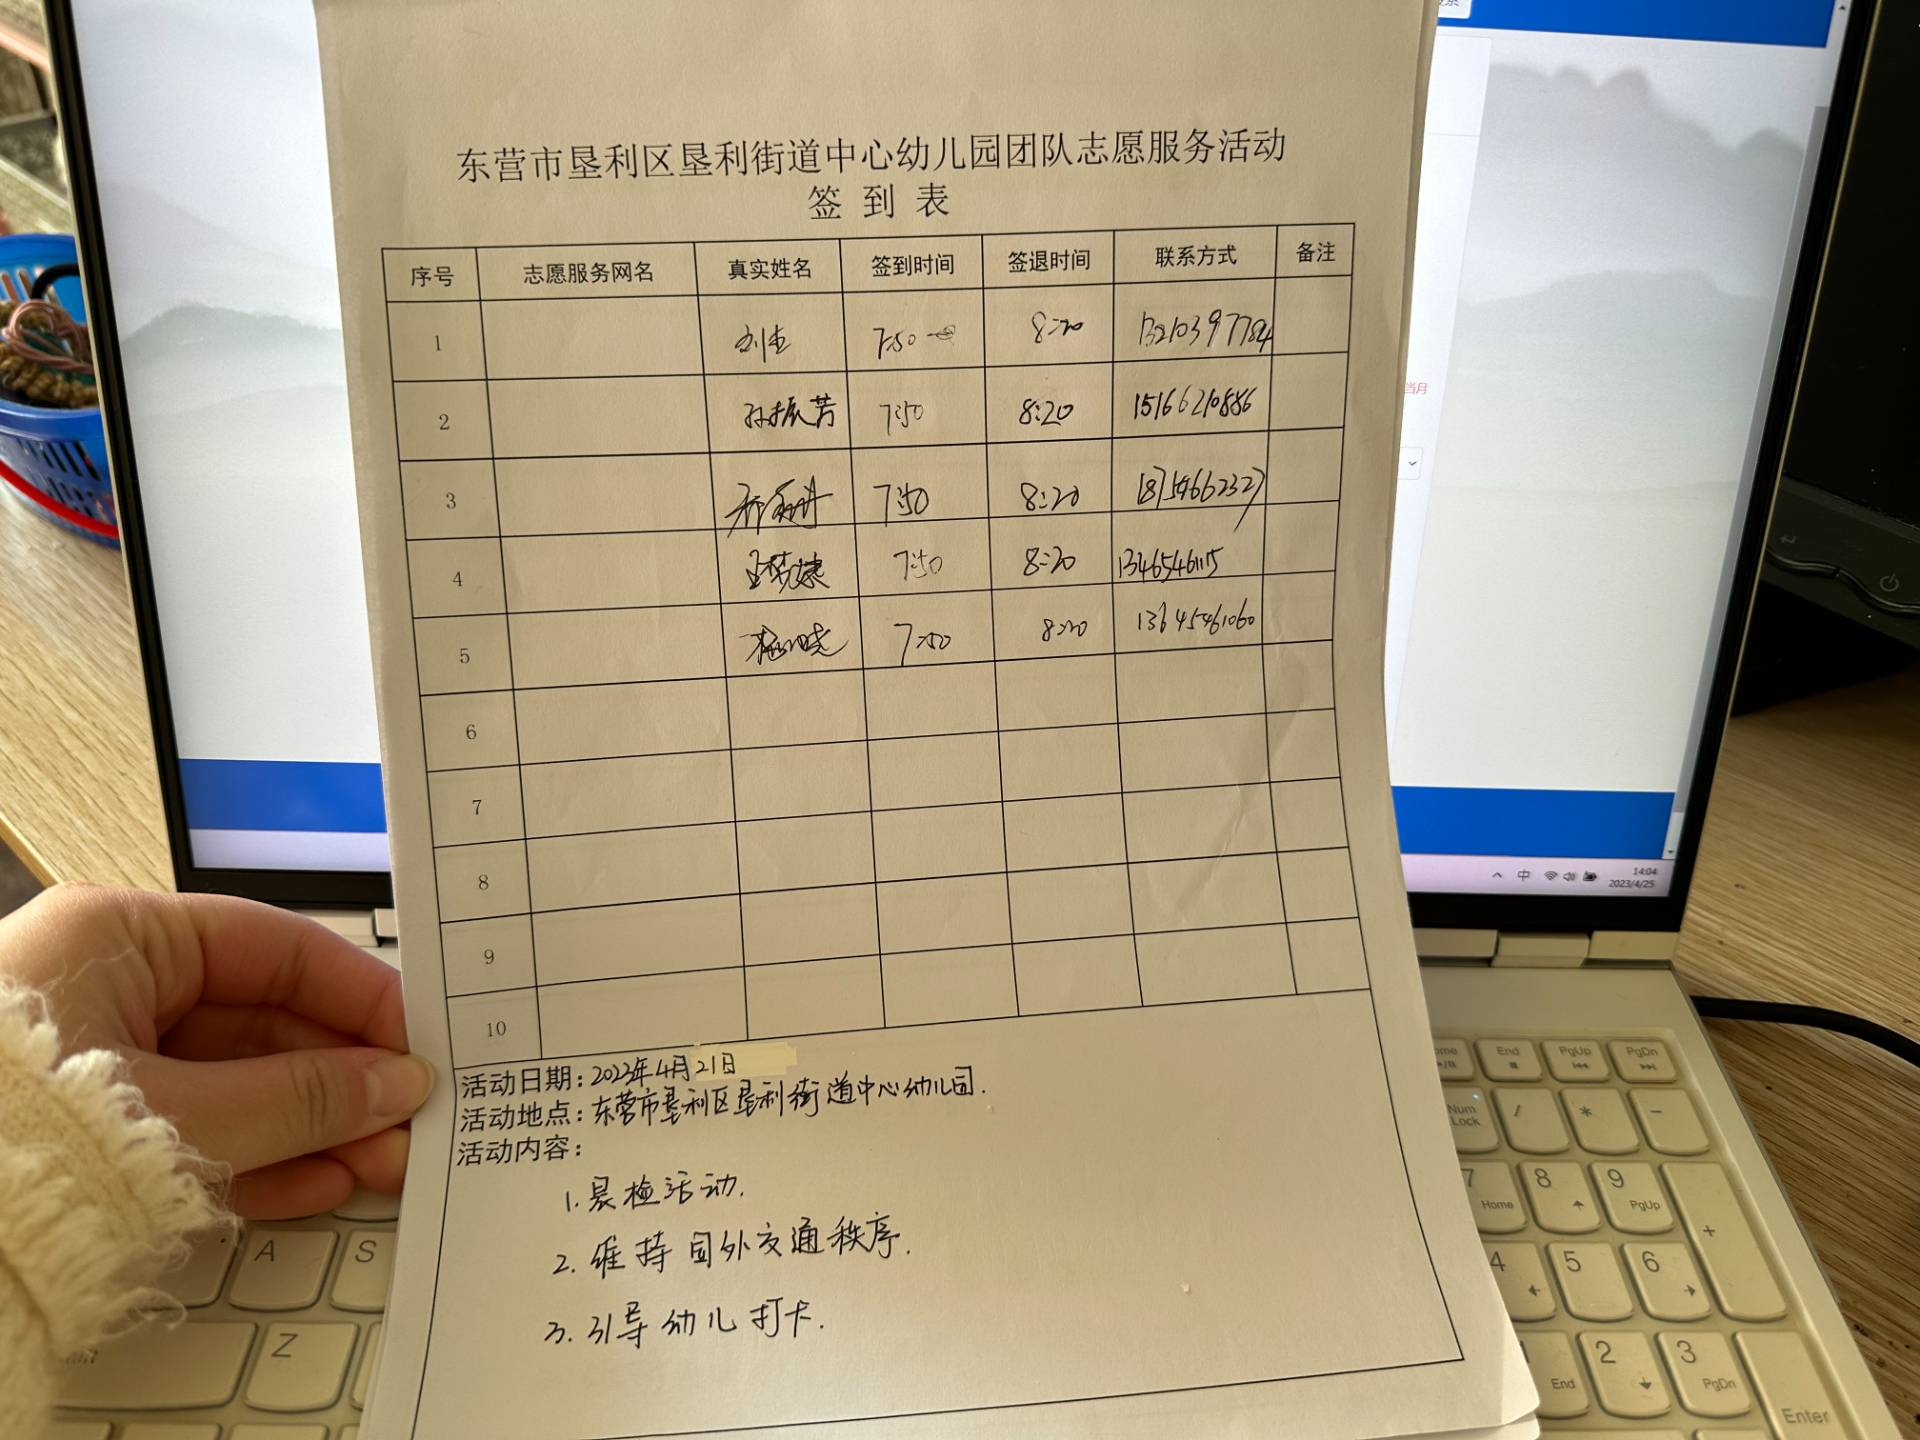 东营市垦利区垦利街道中心幼儿园团队志愿服务活动
签 到 表
序号 志愿服务网名 真实姓名 签到时间 签退时间 联系方式 备注
1 7:50 8:20 13210397784
2 孙振芳 7:50 8:20 15166210886
3 7:50 8:20 187154662327
4 7:50 8:20 13465461115
5 7:50 8:20 13645461060
6
7
8
9
10
活动日期:2023年4月21日
活动地点:东营市垦利区垦利街道中心幼儿园.
活动内容:
1.晨检活动.
2.维持园外交通秩序.
3.引导幼儿打卡.
当月
中
14:04
2023/4/25
A S
Z
End PgUp PgDn
Num Lock / * -
7 Home 8 9 PgUp +
4 5 6
End 2 3 PgDn
Enter